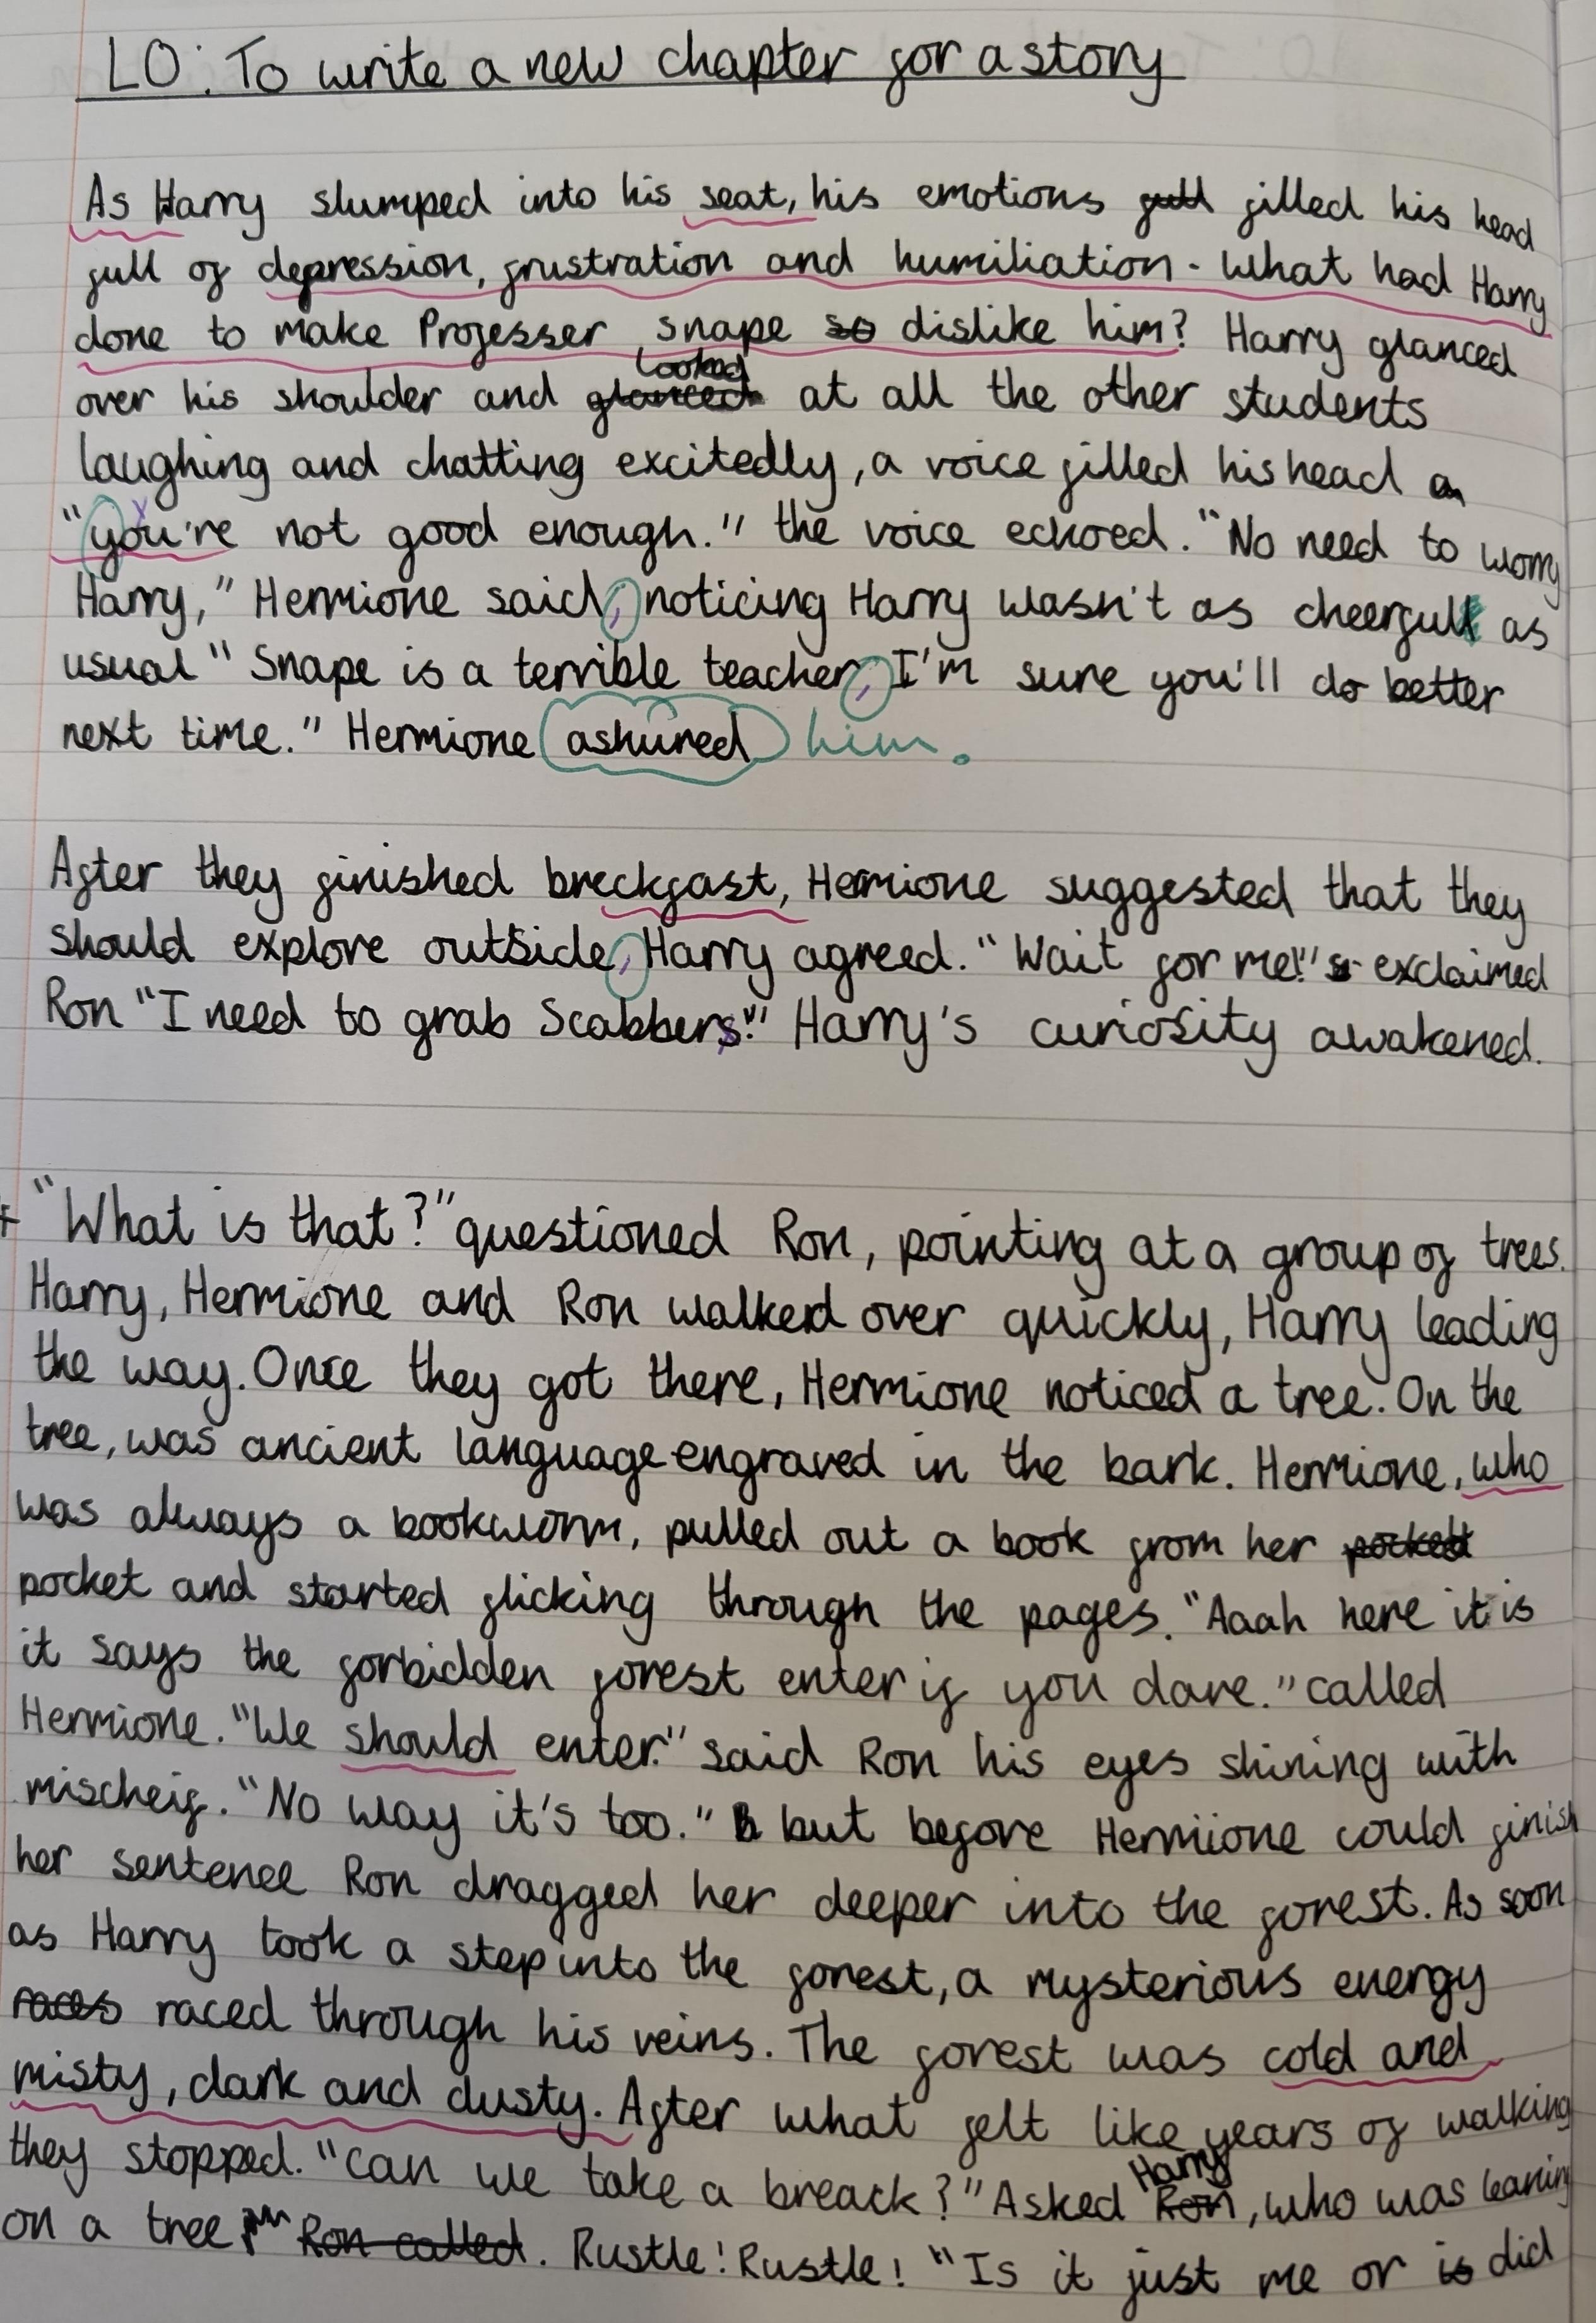 LO: To write a new chapter for a story
As Harry slumped into his seat, his emotions full filled his head
full of depression, frustration and humiliation. What had Harry
done to make Professer snape so dislike him? Harry glanced
looked
over his shoulder and glanced at all the other students
laughing and chatting excitedly, a voice filled his head a
"you're not good enough." the voice echoed. "No need to worry
Harry," Hermione said, noticing Harry wasn't as cheerfull as
usual "Snape is a terrible teacher, I'm sure you'll do better
next time." Hermione ashured him.
After they finished breckfast, Hermione suggested that they
should explore outside, Harry agreed. "Wait for me!" exclaimed
Ron "I need to grab Scabbers." Harry's curiosity awakened.
"What is that?" questioned Ron, pointing at a group of trees.
Harry, Hermione and Ron walked over quickly, Harry leading
the way. Once they got there, Hermione noticed a tree. On the
tree, was ancient language engraved in the bark. Hermione, who
was always a bookworm, pulled out a book from her pocket
pocket and started flicking through the pages. "Aaah here it is
it says the forbidden forest enter if you dare." called
Hermione. "We should enter." said Ron his eyes shining with
mischeif. "No way it's too." but before Hermione could finish
her sentence Ron dragged her deeper into the forest. As soon
as Harry took a step into the forest, a mysterious energy
races raced through his veins. The forest was cold and
misty, dark and dusty. After what felt like years of walking
they stopped. "can we take a breack?" Asked Ron, who was leaning
Harry
on a tree Ron called. Rustle! Rustle! "Is it just me or is did